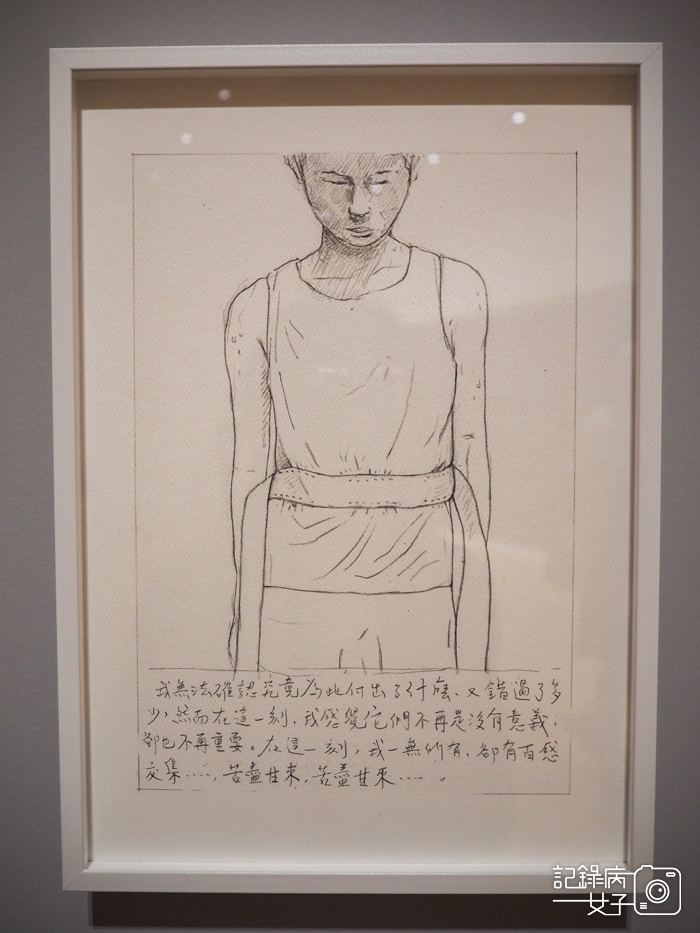 我無法確認究竟為此付出了什麼、又錯過了多
少，然而在這一刻，我感覺它們不再是沒有意義，
卻也不再重要。在這一刻，我一無所有、卻有百感
交集……，苦盡甘來，苦盡甘來……。
記錄病
女子